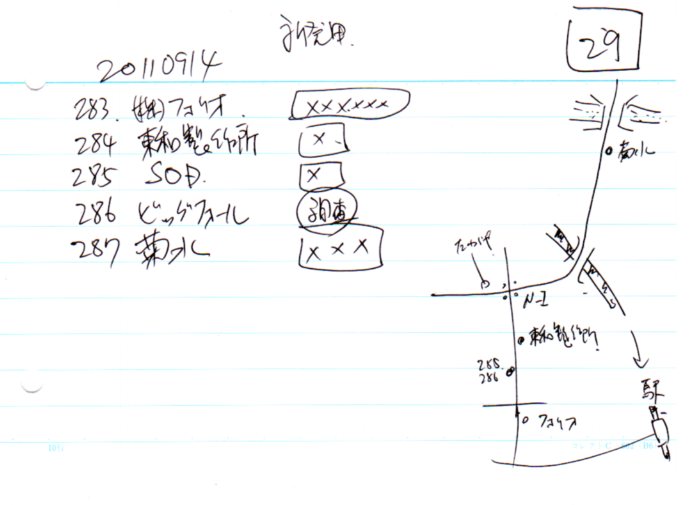 新発田
29
20110914
283. (株)フォリオ. ××××××
284 東和製作所 ×.
285 SOD. ×
286 ビッグフォール 調査
287 菊水 ×××
菊水
N-I
東和製作所
288
286
フォリオ
駅